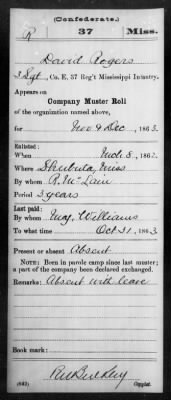 (Confederate.)
R 37 Miss.
David Rogers
3 Sgt, Co. E, 37 Reg't Mississippi Infantry.
Appears on
Company Muster Roll
of the organization named above,
for Nov & Dec, 1863.
Enlisted:
When Mch 8, 1862.
Where Shubuta, Miss
By whom R. McLain
Period 3 years
Last paid:
By whom Maj. Williams
To what time Oct 31, 1863
Present or absent Absent
NOTE: Born in parole camp since last muster;
a part of the company been declared exchanged.
Remarks: Absent with leave
Book mark:
(642) Copyist.